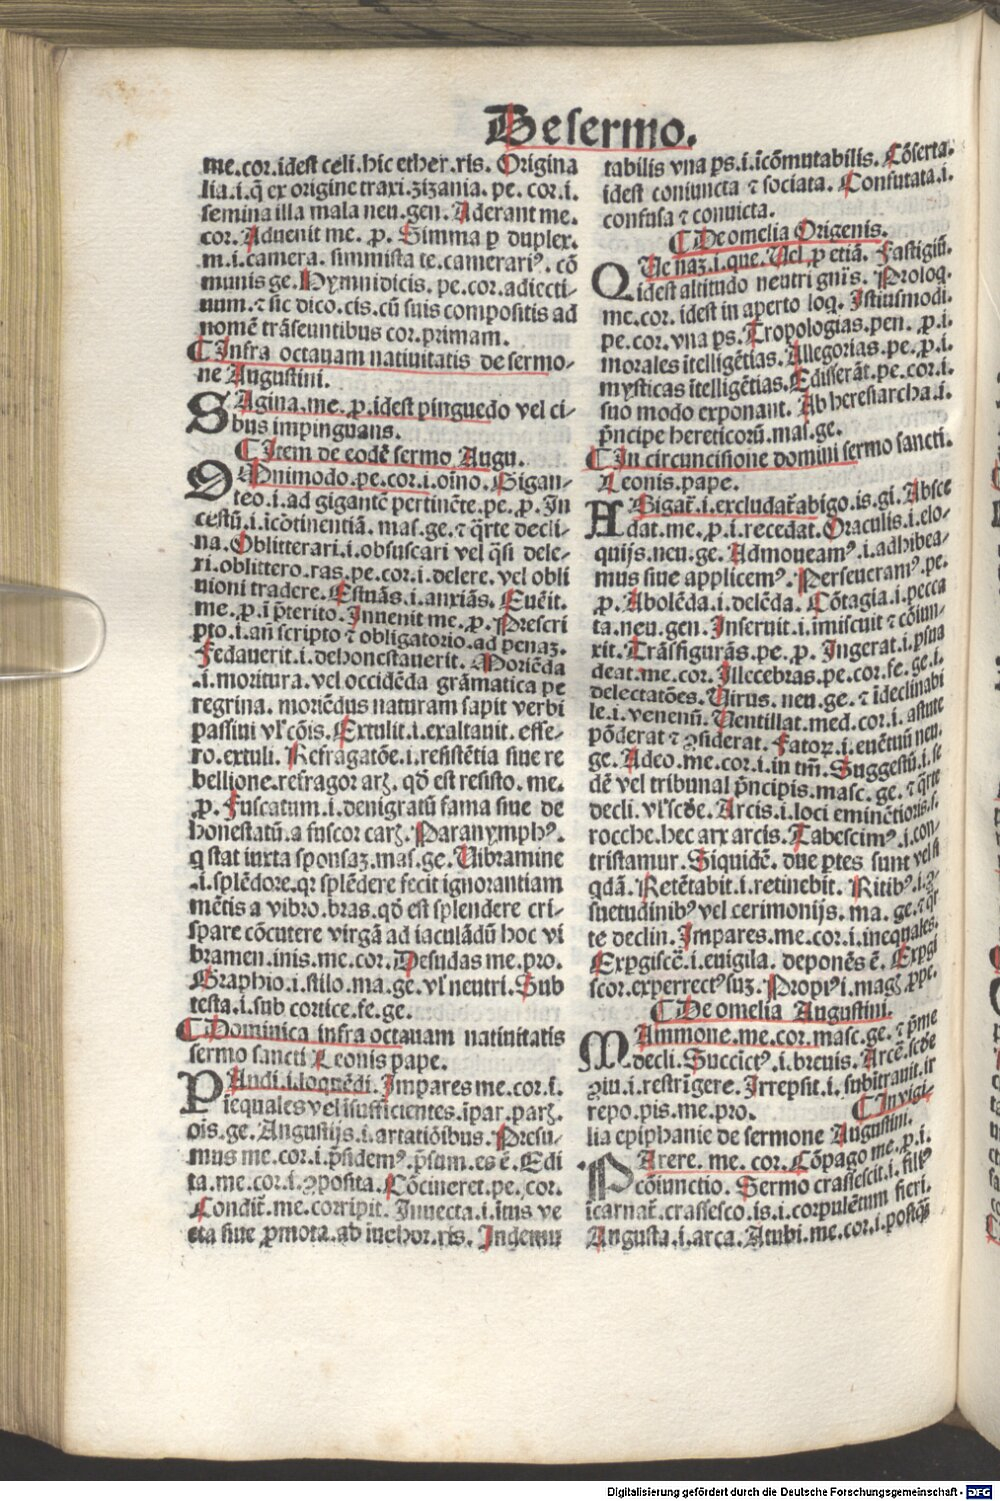 De sermo.
me.cor.idest celi.hic ether.ris. Origina
lia.i.q̃ ex origine traxi.zizania.pe.cor.i.
semina illa mala neu.gen. Aderant me.
cor. Aduenit me.p. Simma p duplex.
m.i.camera. simmista te.camerariꝰ.cõ
munis ge. Hymnidicis.pe.cor.adiecti-
uum.⁊ sic dico.cis.cũ suis compositis ad
nomẽ trãseuntibus cor.primam.
¶ Infra octauam natiuitatis de sermo-
ne Augustini.
SAgina.me.p.idest pinguedo vel ci-
bus impinguans.
¶ Item de eodẽ sermo Augu.
OMnimodo.pe.cor.i.oĩno. Gigan-
teo.i.ad gigantẽ pertinẽte.pe.p. In
cestũ.i.icõtinentiã.mas.ge.⁊ q̃rte decli-
na. Oblitterari.i.obfuscari vel q̃si dele-
ri.oblittero.ras.pe.cor.i.delere.vel obli
uioni tradere. Estuãs.i.anxiãs. Euẽit.
me.p.i p̃terito. Inuenit me.p. Prescri
pto.i.añ scripto ⁊ obligatorio.ad penaz.
Fedauerit.i.dehonestauerit. Moriẽda
.i.moritura.vel occidẽda grãmatica pe
regrina.moriẽdus naturam sapit verbi
passiui vl̃ cõis. Extulit.i.exaltauit.effe-
ro.extuli. Refragatõe.i.resistẽtia siue re
bellione.refragor arꝭ.qđ est resisto.me.
p. Fuscatum.i.denigratũ fama siue de
honestatũ.a fuscor carꝭ. Paranymphꝰ.
q stat iuxta sponsaz.mas.ge. Uibramine
.i.splẽdore.qr splẽdere fecit ignorantiam
mẽtis a vibro.bras.qđ est splendere cri-
spare cõcutere virgã ad iaculãdũ hoc vi
bramen.inis.me.cor. Desudas me.pro.
Graphio.i.stilo.ma.ge.vl̃ neutri. Sub
testa.i.sub cortice.fe.ge.
¶ Dominica infra octauam natiuitatis
sermo sancti Leonis pape.
PAndi.i.loquẽdi. Impares me.cor.i.
iequales vel isufficientes.ipar.parꝭ.
ois.ge. Angustijs.i.artatiõibus. Presu-
mus me.cor.i.p̃sidemꝰ.p̃sum.es ẽ. Edi
ta.me.cor.i.ꝯposita. Cõcineret.pe.cor.
Condit̃.me.corripit. Inuecta.i.ĩtus ve
cta siue ꝓmota.ab inehor.ris. Indemu
tabilis vna ps.i.icõmutabilis. Cõserta.
idest coniuncta ⁊ sociata. Confutata.i.
confusa ⁊ conuicta.
¶ De omelia Origenis.
QUe naz.i.que. Uel p etiã. Fastigiũ.
idest altitudo neutri gñis. Prologͦ.
me.cor. idest in aperto loq̃. Istiusmodi.
pe.cor.vna ps. Tropologias.pen.p.i.
morales itelligẽtias. Allegorias.pe.p.i.
mysticas itelligẽtias. Edisserãt.pe.cor.i.
suo modo exponant. Ab heresiarcha.i.
p̃ncipe hereticorũ.mas.ge.
¶ In circuncisione domini sermo sancti
Leonis.pape.
ABigat̃.i.excludat̃ abigo.is.gi. Absce
dat.me.p.i.recedat. Oraculis.i.elo-
quijs.neu.ge. Admoueamꝰ.i.adhibea-
mus siue applicemꝰ. Perseueramꝰ.pe.
p. Abolẽda.i.delẽda. Cõtagia.i.pecca
ta.neu.gen. Inseruit.i.imiscuit ⁊ cõiun-
xit. Trãsfigurãs.pe.p. Ingerat.i.p̃sua
deat.me.cor. Illecebras.pe.cor.fe.ge.i.
delectatões. Uirus.neu.ge.⁊ ideclinabi
le.i.venenũ. Uentillat.med.cor.i.astute
põderat ⁊ ꝯsiderat. Fatoꝝ.i.euẽtuũ neu.
ge. Adeo.me.cor.i.in tm̃. Suggestũ.i.se
dẽ vel tribunal p̃ncipis.masc.ge.⁊ q̃rte
decli.vl̃ scđe. Arcis.i.loci eminẽtioris.s.
rocche.hec arx arcis. Tabescimꝰ.i.con-
tristamur. Siquidẽ. due p̃tes sunt vel si
qdã. Retẽtabit.i.retinebit. Ritibꝰ.i.ꝯ-
suetudinibꝰ vel cerimonijs.ma.ge.⁊ q̃r
te declin. Impares.me.cor.i.inequales.
Expgiscẽ.i.euigila. deponẽs ẽ. Expgi
scor.experrectꝰ suz. Propiꝰ.i.magꝭ ꝓpe.
¶ De omelia Augustini.
MAmmone.me.cor.masc.ge.⁊ p̃me
decli. Succictꝰ.i.breuis. Arcẽ.scđe
ꝯiu.i.restrĩgere. Irrepsit.i.subitrauit.ir
repo.pis.me.pro. ¶ In vigi-
lia epiphanie de sermone Augustini.
PArere. me. cor. Cõpago me.p.i.
cõiunctio. Sermo crassescit.i.filiꝰ
icarnat̃.crassesco.is.i.corpulẽtum fieri.
Angusta.i.arca. Atubi.me.cor.i.postq̃
Digitalisierung gefördert durch die Deutsche Forschungsgemeinschaft - DFG